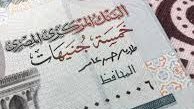 البنك المركزي المصري
خمسة جنيهات
طارق حسن عامر
المحافظ
٠٠٠٠٠٠٦